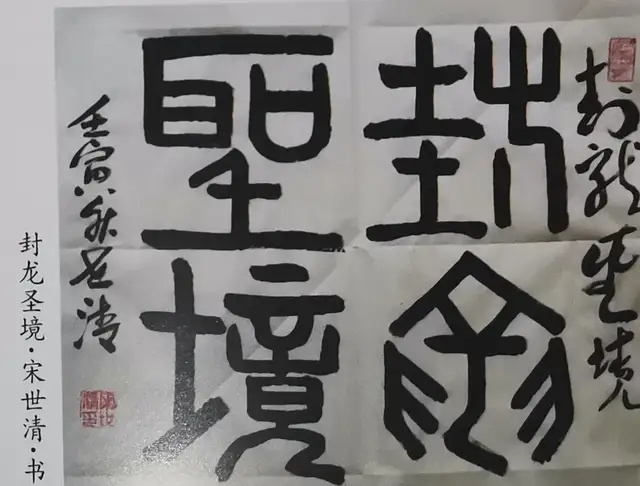 封龍聖境
封龍
聖境
壬寅秋世清
封龙圣境·宋世清·书